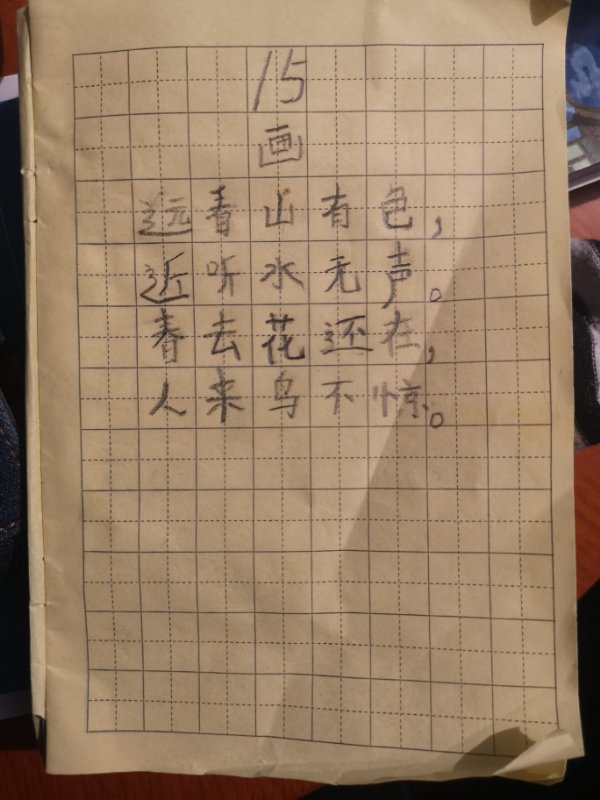 15
画
远看山有色，
近听水无声。
春去花还在，
人来鸟不惊。